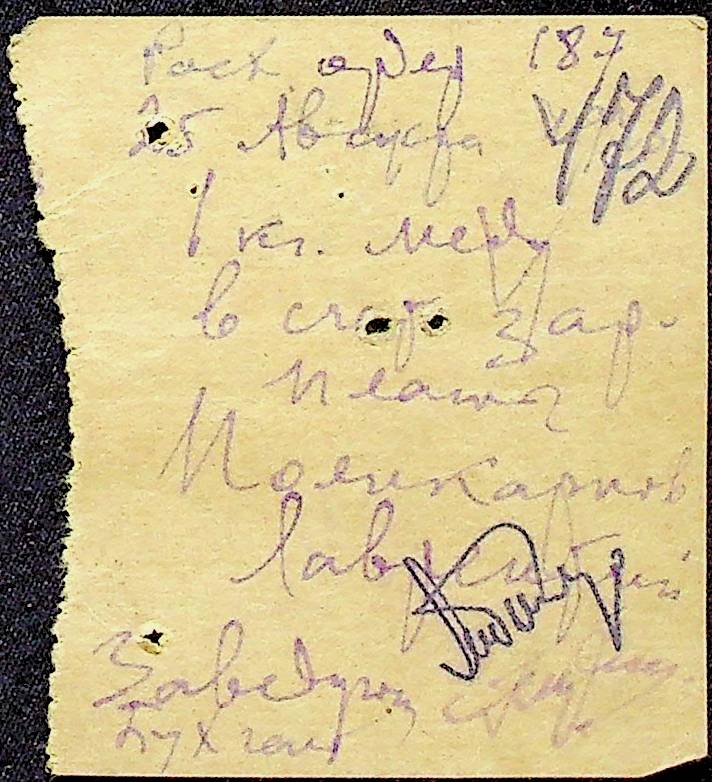 Расх ордер 187
25 Августа 472
1 кг. меду
в счет зар.
платы
Поликарпов
Лаврентий
Заведующ
Бухгалт